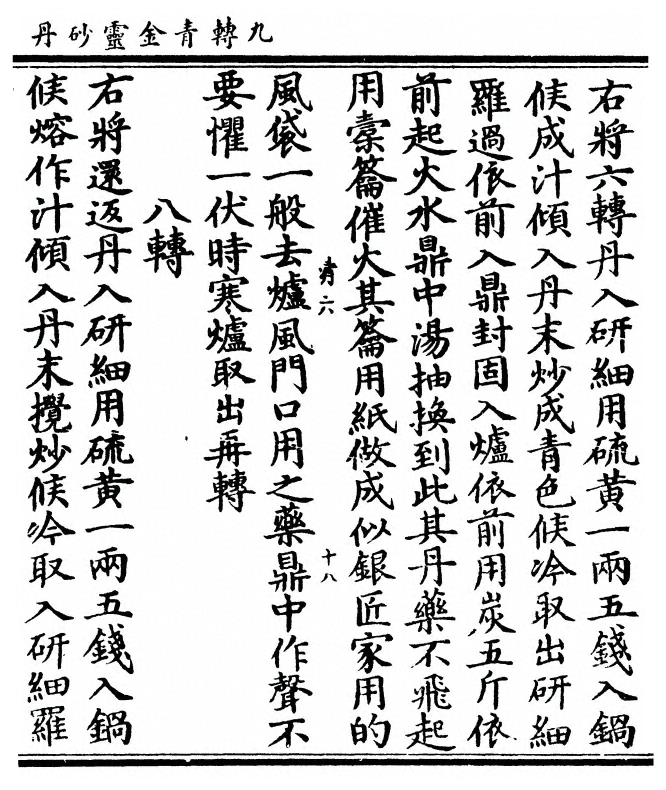 九轉青金靈砂丹
右將六轉丹入研細用硫黃一兩五錢入鍋
候成汁傾入丹末炒成青色候冷取出研細
羅過依前入鼎封固入爐依前用炭五斤依
前起火水鼎中湯抽換到此其丹藥不飛起
用橐籥催火其籥用紙做成似銀匠家用的
青六
十八
風袋一般去爐風門口用之藥鼎中作聲不
要懼一伏時寒爐取出再轉
八轉
右將還返丹入研細用硫黃一兩五錢入鍋
候熔作汁傾入丹末攪炒候冷取入研細羅